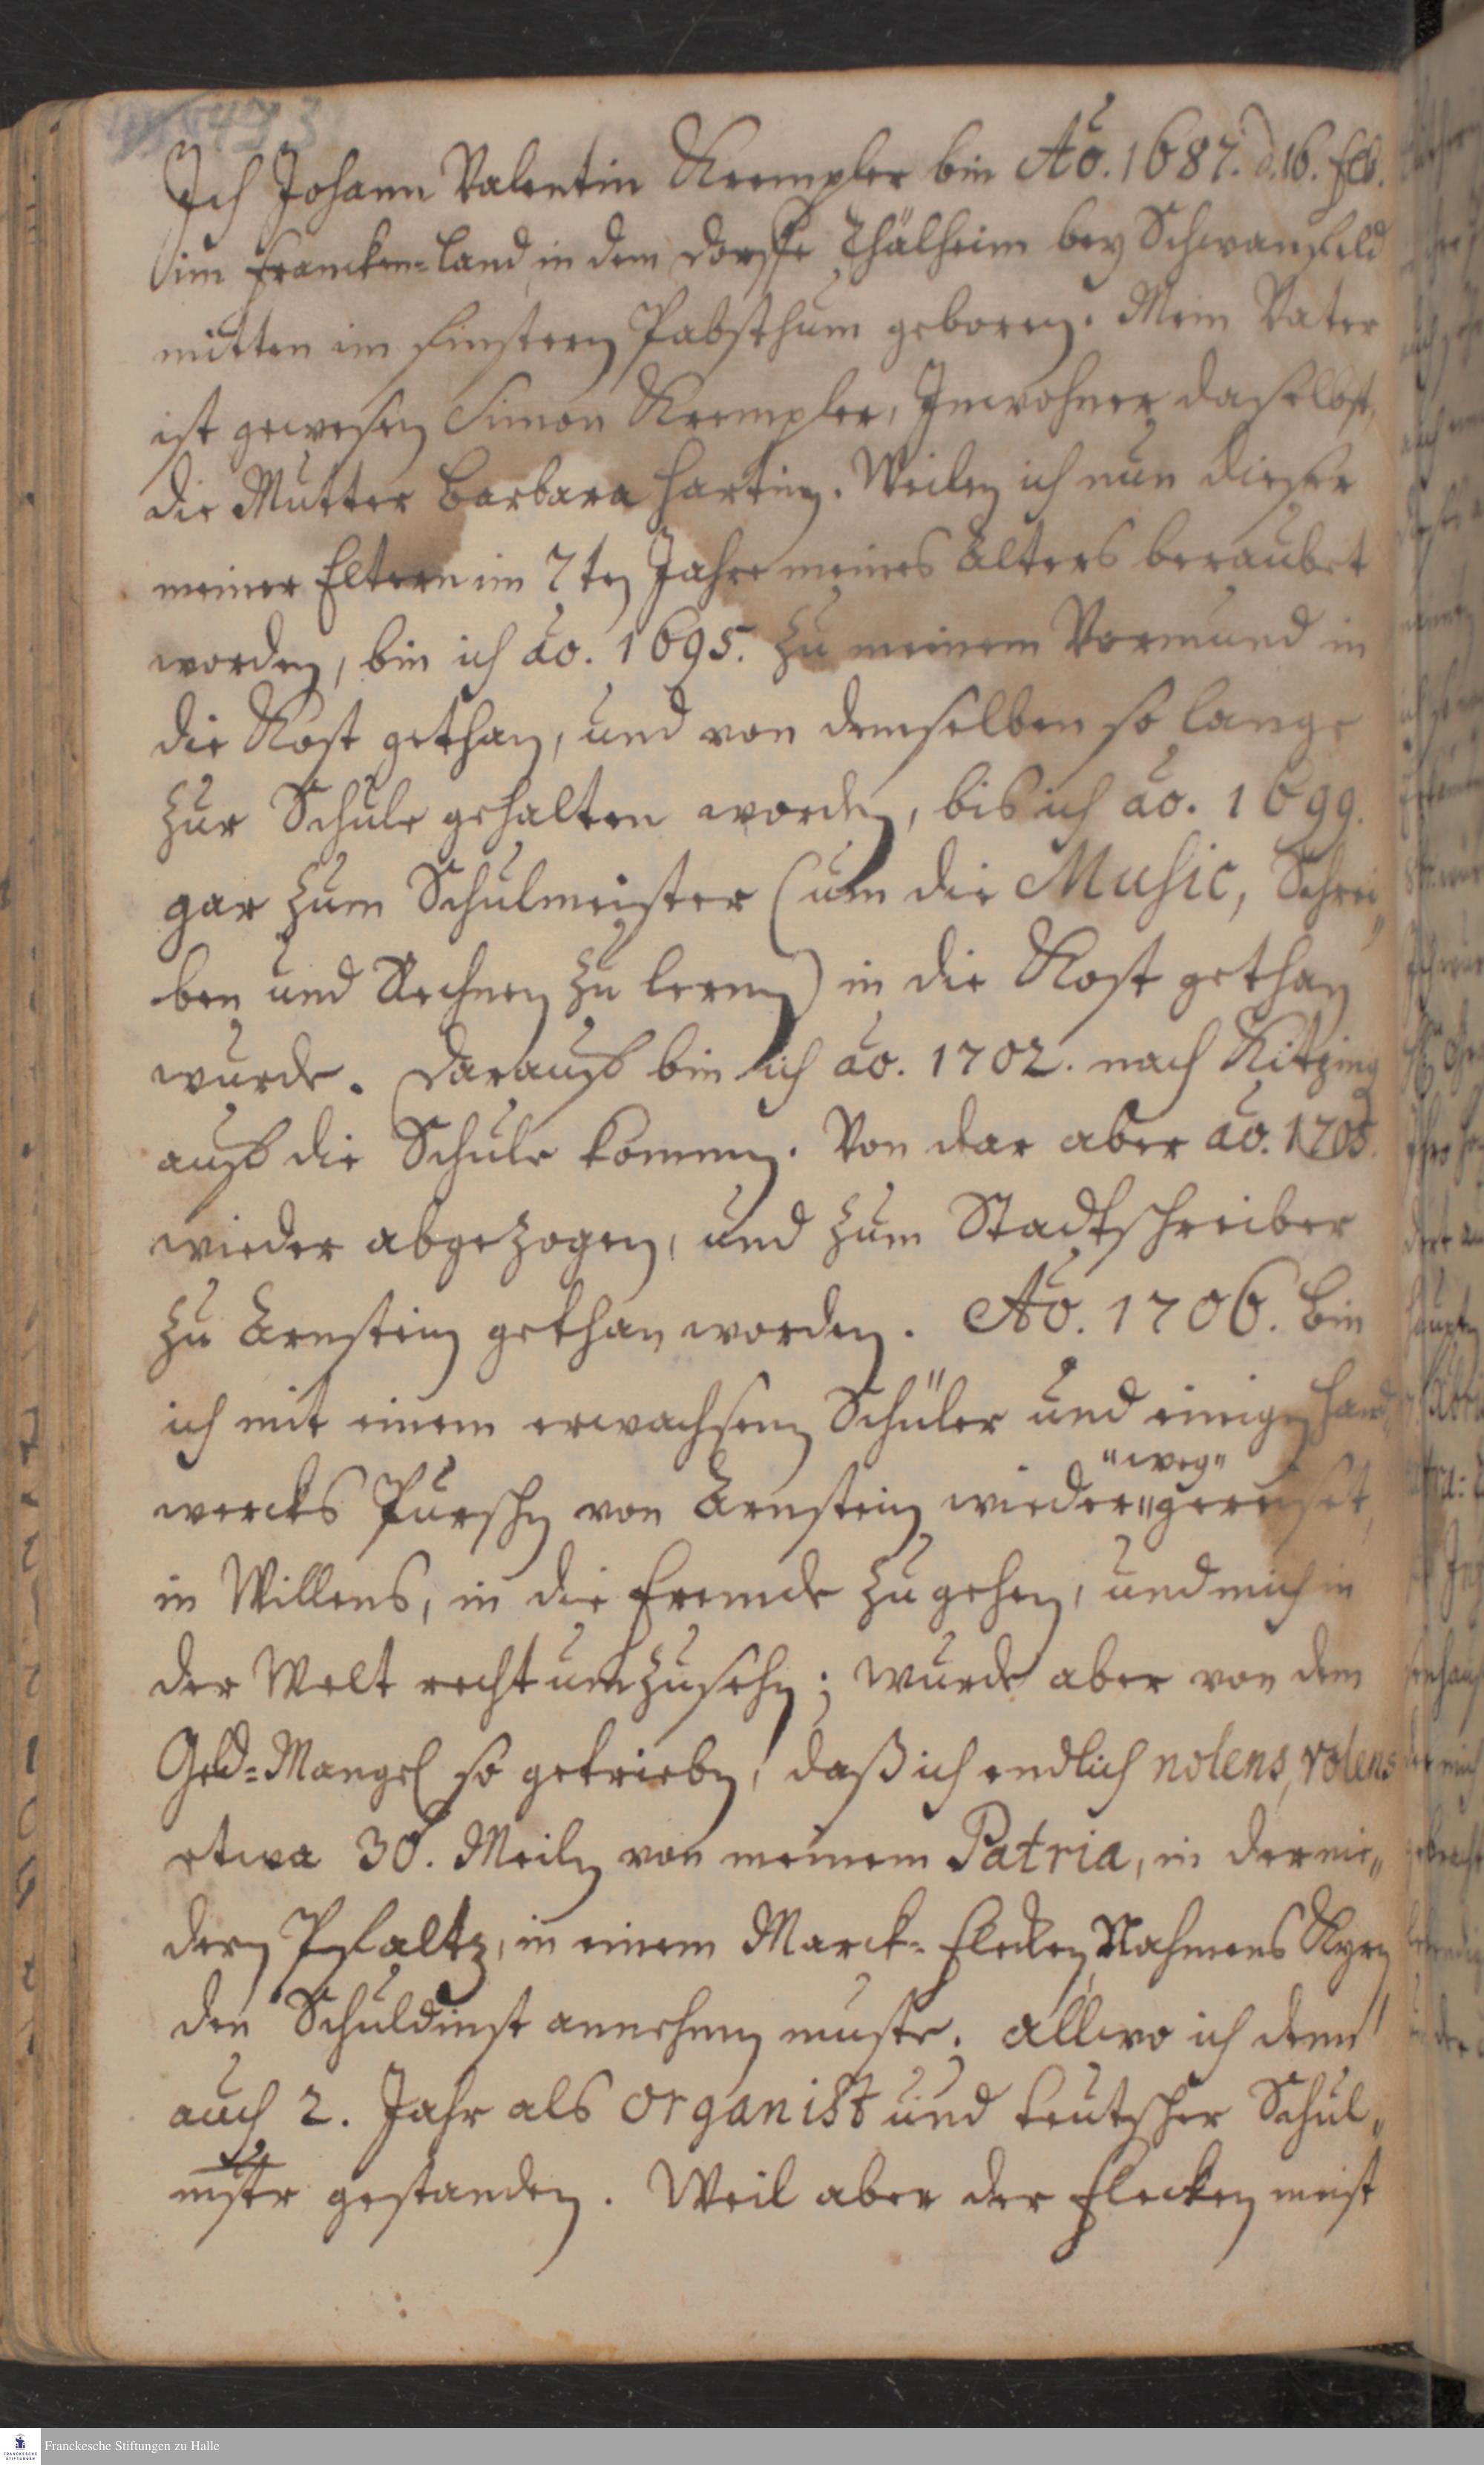 Ich Johann Valentin Krempler bin Aō. 1687. d. 16. Feb.
im Francken-Land, in dem Dorffe Thälheim bey Schwanfeld
mitten im finstern Pabsthum geboren. Mein Vater
ist gewesen Simon Krempler, Inwohner daselbst,
die Mutter Barbara Hartin. Weilen ich nun dieser
meiner Eltern im 7ten Jahre meines Alters beraubet
worden, bin ich ao. 1695. zu meinem Vormund in
die Kost gethan, und von demselben so lange
zur Schule gehalten worden, bis ich ao. 1699.
gar zum Schulmeister (um die Music, Schrei„
ben und Rechnen zu lernen) in die Kost gethan
wurde. Darauf bin ich ao. 1702. nach Kitzing
auf die Schule kommen. Von dar aber ao. 1705.
wieder abgezogen, und zum Stadtschreiber
zu Arnstein gethan worden. Aō. 1706. bin
ich mit einem erwachsenen Schüler und einigen Hand-
"weg"
wercks Purschen von Arnstein wieder "gereiset,
in Willens, in die Fremde zu gehen, und mich in
der Welt recht umzusehen; wurde aber von dem
Geld-Mangel so getrieben, daß ich endlich nolens, volens
etwa 30. Meilen von meinem Patria, in der nie„
dern Pfaltz, in einem Marck-Flecken, Nahmens Kyrn
den Schuldienst annehmen muste. allwo ich denn
auch 2. Jahr als Organist und teutscher Schul„
mstr gestanden. Weil aber der Flecken meist
Franckesche Stiftungen zu Halle